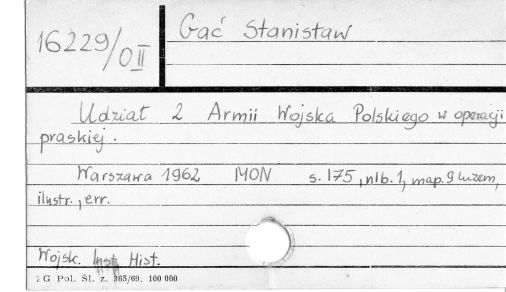 16229/OII
Gać Stanisław
Udział 2 Armii Wojska Polskiego w operacji
praskiej.
Warszawa 1962 MON s. 175, nlb. 1, map. 9 luzem,
ilustr., err.
Wojsk. Inst. Hist.
2 G Pol. Śl. z. 365/69. 100 000